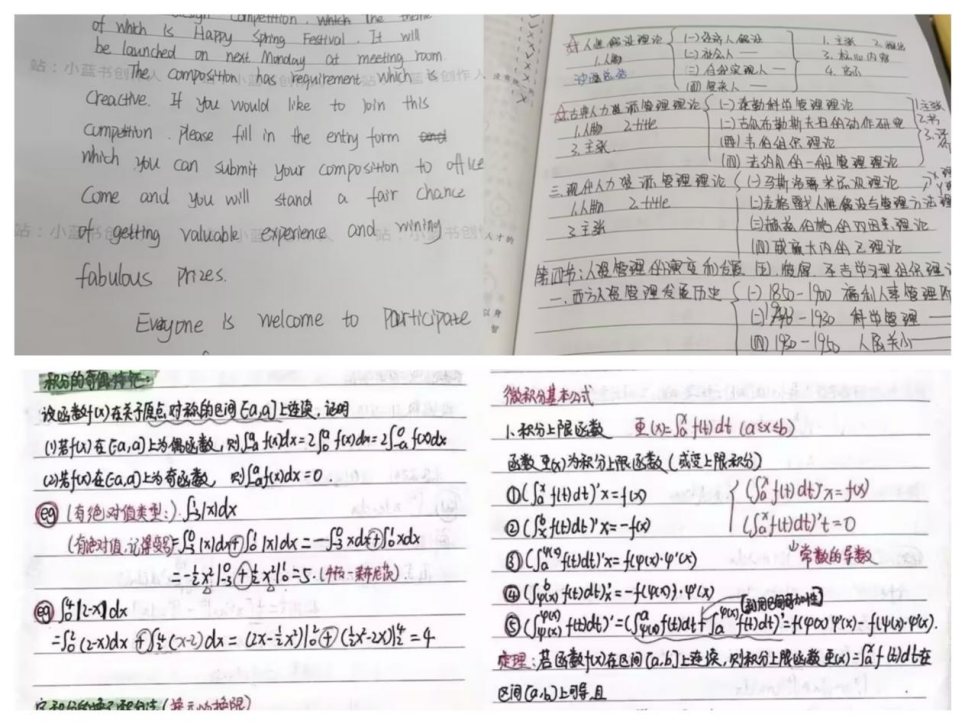 of which is Happy Spring Festival. It will
be launched on next Monday at meeting room.
The composition has requirement which is
creactive. If you would like to join this
compution. Please fill in the entry form
which you can submit your composition to office
Come and you will stand a fair chance
of getting valuable experience and wining
fabulous prizes.
Everyone is welcome to Participate
人性假设理论 (一)经济人假设 1.主张
1.人物 (二)社会人 — 3.核心内容
(三)自我实现人 — 4.
(四)复杂人 —
古典人力资源管理理论 (一)泰勒科学管理理论 1.主张
1.人物 2.title (二)吉尔布勒斯夫妇的动作研究 2.书
3.主张 (四)韦伯组织理论
(四)法约尔的一般管理理论
三.现代人力资源管理理论 (一)马斯洛需求层次理论
1.人物 2.title (二)麦格雷戈人性假设与管理方法
3.主张 (三)赫兹伯格的双因素理论
(四)威廉大内的Z理论
第四节:人资管理的演变和 (五)
一.西方人资管理发展历史 (一)1850-1900 福利人事管理
-1930 科学管理 —
(四)1930-1950 人际关系 —
积分的奇偶特征:
设函数f(x)在关于原点对称的区间[-a,a]上连续,证明
(1)若f(x)在[-a,a]上为偶函数,则∫₋ₐᵃf(x)dx=2∫₀ᵃf(x)dx=2∫₋ₐ⁰f(x)dx
(2)若f(x)在[-a,a]上为奇函数,则∫₋ₐᵃf(x)dx=0.
eg (有绝对值类型:)∫₋₃¹|x|dx
(有绝对值,记得变号)=∫₋₃⁰|x|dx+∫₀¹|x|dx=-∫₋₃⁰xdx+∫₀¹xdx
=-½x²|₋₃⁰+½x²|₀¹=5.(牛顿-莱布尼茨)
eg ∫₀⁴|2-x|dx
=∫₀²(2-x)dx+∫₂⁴(x-2)dx=(2x-½x²)|₀²+(½x²-2x)|₂⁴=4
微积分基本公式
1.积分上限函数 更(x)=∫ₐˣf(t)dt (a≤x≤b)
函数更(x)为积分上限函数(或变上限积分)
①(∫ₐˣf(t)dt)'x=f(x) (∫ₐˣf(t)dt)'x=f(x)
②(∫ₓᵇf(t)dt)'x=-f(x) (∫ₐˣf(t)dt)'t=0
③(∫ₐ^φ(x)f(t)dt)'x=f(φ(x))·φ'(x) 常数的导数
④(∫_ψ(x)^b f(t)dt)'x=-f(ψ(x))·ψ'(x)
⑤(∫_ψ(x)^φ(x) f(t)dt)'=(∫_ψ(x)^a f(t)dt+∫ₐ^φ(x) f(t)dt)'=f(φ(x))φ'(x)-f(ψ(x))·ψ'(x).
定理:若函数f(x)在区间[a,b]上连续,则积分上限函数更(x)=∫ₐˣf(t)dt在
区间[a,b]上可导,且